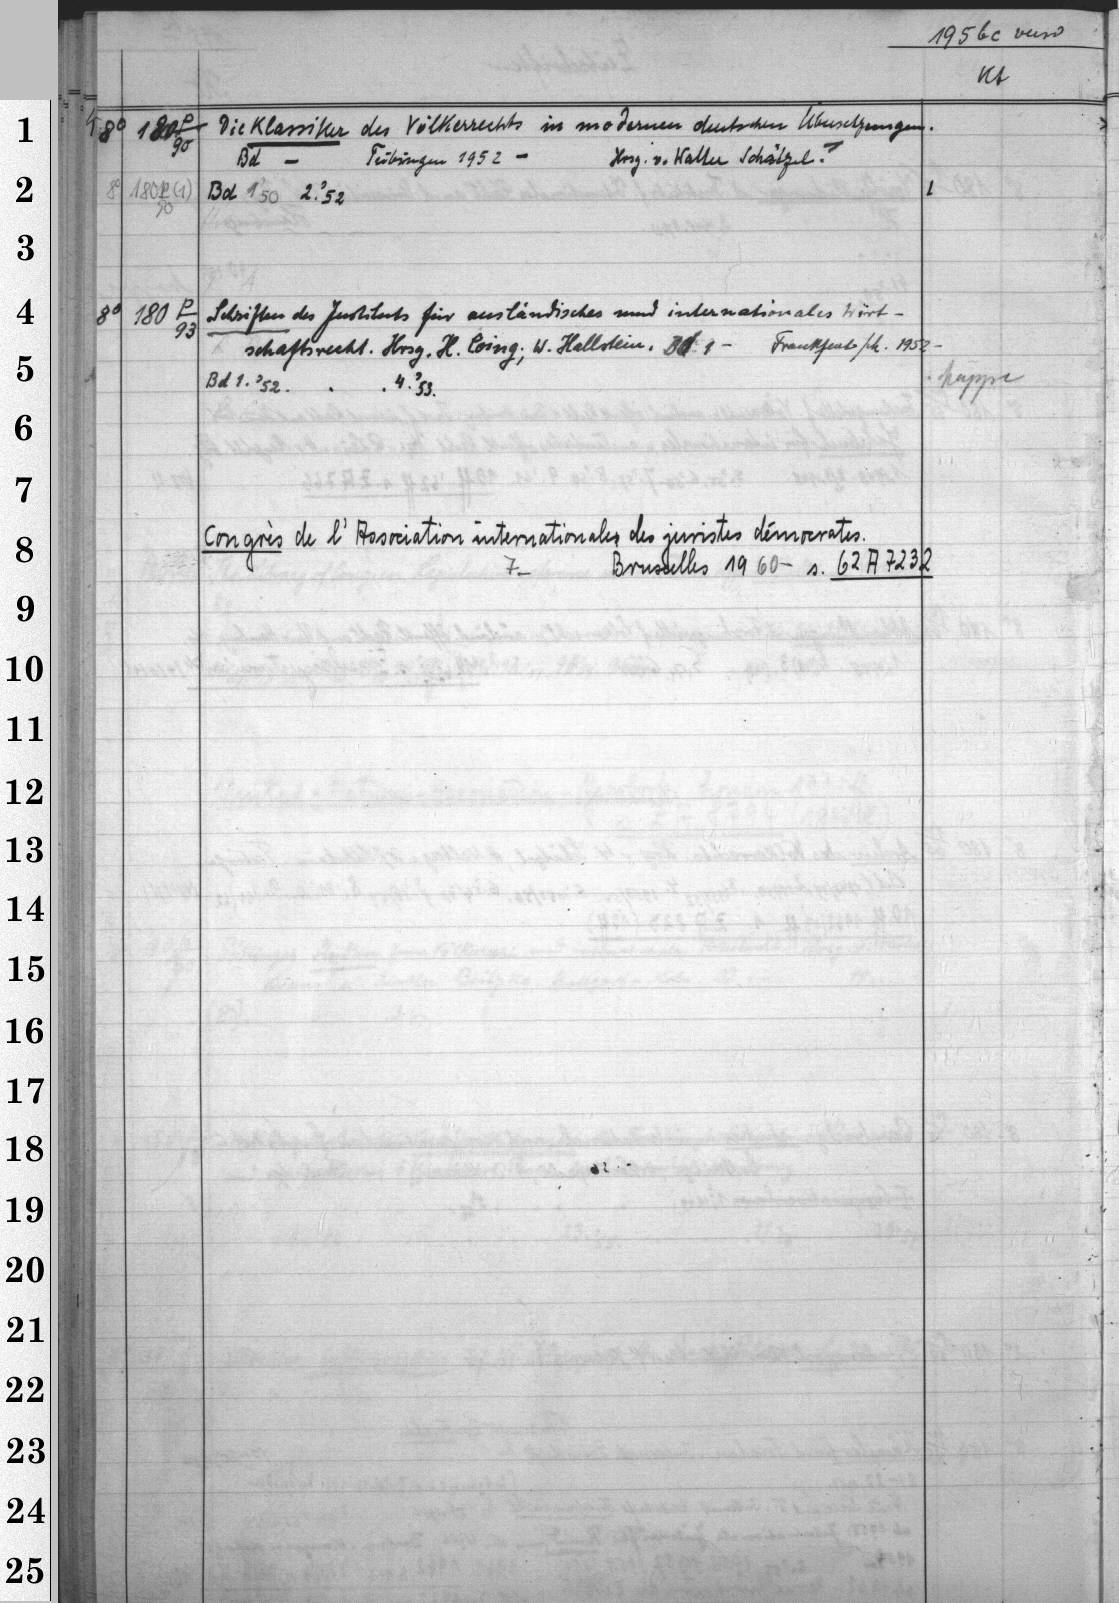 195bc verso
Kt
1
4 8° 180 P/90 Die Klassiker des Völkerrechts in modernen deutschen Übersetzungen.
Bd — Tübingen 1952 — Hrsg. v. Walter Schätzel.
2 8° 180 P/90 (1) Bd 1.'50 2.'52 1
3
4 8° 180 P/93 Schriften des Instituts für ausländisches und internationales Wirt-
schaftsrecht. Hrsg. H. Coing, W. Hallstein. Bd. 1 — Frankfurt/M. 1952 —
5 Bd 1.'52. . . 4.'53. Mappe
6
7
8 Congrès de l'Association internationale des juristes démocrates.
7— Bruxelles 1960— s. 62 A 7232
9
10
11
12
13
14
15
16
17
18
19
20
21
22
23
24
25